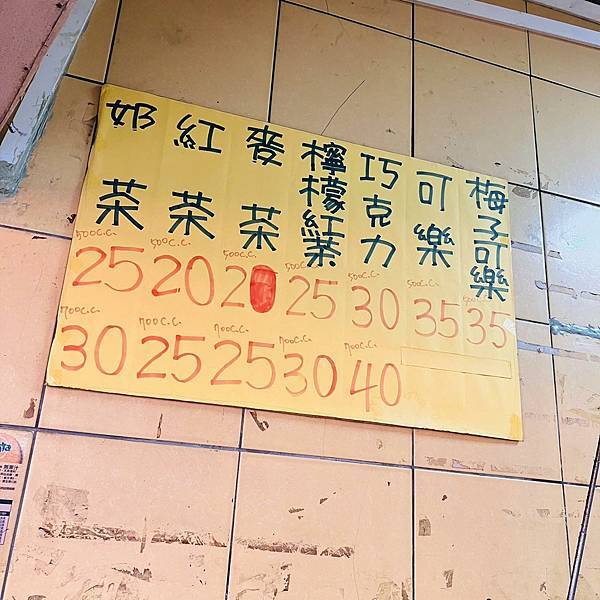 奶茶
紅茶
麥茶
檸檬紅茶
巧克力
可樂
梅子可樂
500c.c. 500c.c. 500c.c. 500c.c. 500c.c. 500
25 20 20 25 30 35 35
700c.c. 700c.c. 700c.c. 700c.c. 700c.c.
30 25 25 30 40